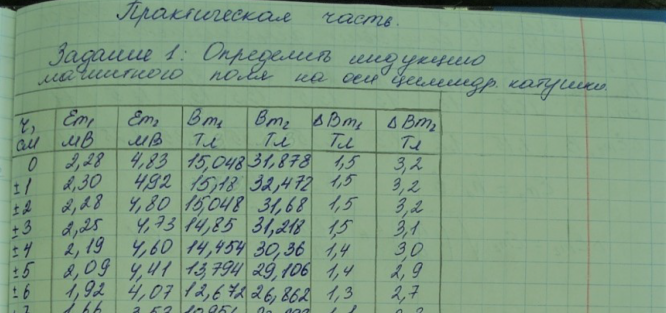 Практическая часть.
Задание 1: Определить индукцию
магнитного поля на оси цилиндр. катушки.
Ч, см Em₁ мВ Em₂ мВ Bm₁ Тл Bm₂ Тл ΔBm₁ Тл ΔBm₂ Тл
0 2,28 4,83 15,048 31,878 1,5 3,2
±1 2,30 4,92 15,18 32,472 1,5 3,2
±2 2,28 4,80 15,048 31,68 1,5 3,2
±3 2,25 4,73 14,85 31,218 1,5 3,1
±4 2,19 4,60 14,454 30,36 1,4 3,0
±5 2,09 4,41 13,794 29,106 1,4 2,9
±6 1,92 4,07 12,672 26,862 1,3 2,7